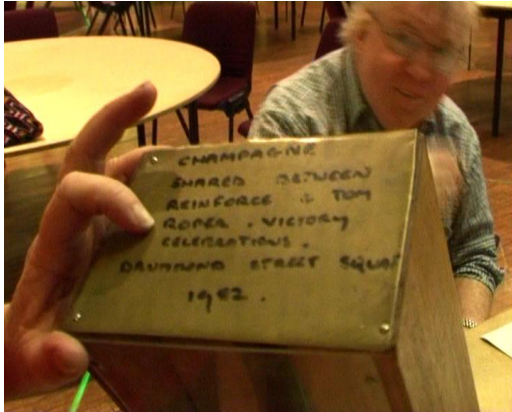 CHAMPAGNE
SHARED BETWEEN
REINFORCE & TOM
ROPER . VICTORY
CELEBRATIONS .
DRUMMOND STREET SQUAT
1982 .